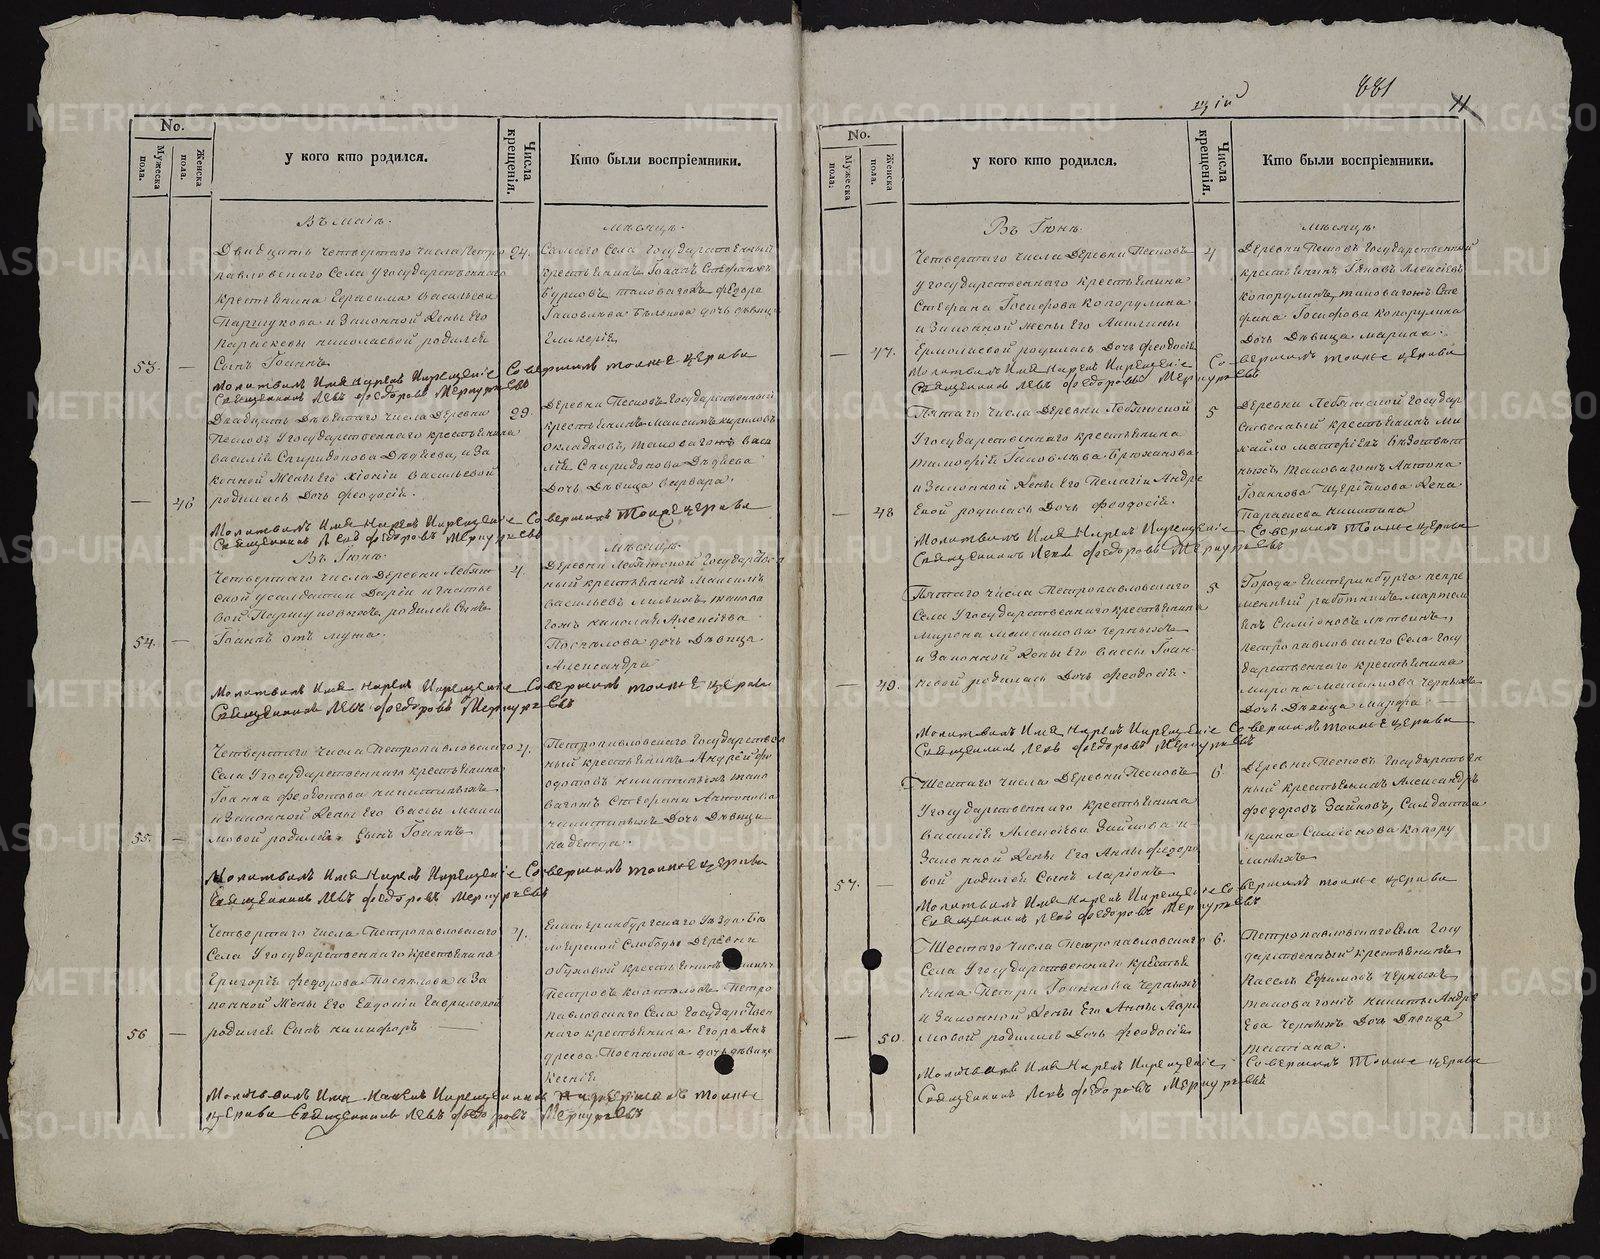 No.
Мужеска пола.
Женска пола.
у кого кто родился.
Числа крещенія.
Кто были воспріемники.
Въ Маіѣ.
Мѣсяцѣ.
Двадцать четвертаго числа Петро
павловскаго Села у государственнаго
крестьянина Герасима Васильева
Паршукова и Законной Жены Его
Параскевы Николаевой родился
53. — Сынъ Іоаннъ.
24. Самаго Села Государственный
крестьянинъ Іоаннъ Стефановъ
дочь дѣвица
Гликерія
Молитвилъ Имя Нарекъ И крещеніе Совершилъ тояже церкви
Священникъ Левъ Федоровъ Меркурьевъ
Двадцать Девятаго числа Деревни
Песковъ У государственнаго крестьянина
Василія Спиридонова Дѣдіева, и За
конной Жены Его Хіоніи Васильевой
— 46 родилась Дочь Феодосія.
29. Деревни Песковъ Государственный
крестьянинъ Максимъ Кириловъ
Окладновъ, таковагожъ Васи
лія Спиридонова Дѣдіева
Дочь Дѣвица Варвара.
Молитвилъ Имя Нарекъ И крещеніе Совершилъ Тояже церкви
Священникъ Левъ Федоровъ Меркурьевъ
Въ Іюнѣ.
Мѣсяцѣ.
Четвертаго числа Деревни Лебяж
ской у салдатки Даріи Игнатье
вой Паршуковыхъ родился Сынъ
54. — Іоаннъ отъ мужа.
4. Деревни Лебяжской Государствен
ный крестьянинъ Максимъ
Васильевъ таkова
гожъ Николая Алексіева
Поспѣлова дочь Дѣвица
Александра
Молитвилъ Имя Нарекъ И крещеніе Совершилъ тояже церкви
Священникъ Левъ Федоровъ Меркурьевъ
Четвертаго числа Петропавловскаго
Села У государственнаго крестьянина
Іоанна Феодотова Никитиныхъ
и Законной Жены Его Вассы Макси
55. — мовой родился Сынъ Іоаннъ
4. Петропавловскаго Государствен
ный крестьянинъ Андрей Фе
одотовъ Никитиныхъ тако
вагожъ Стефана Антонова
Никитиныхъ Дочь Дѣвица
Надежда.
Молитвилъ Имя Нарекъ И крещеніе Совершилъ тояже церкви
Священникъ Левъ Федоровъ Меркурьевъ
Четвертаго числа Петропавловскаго
Села У государственнаго крестьянина
Григорія Федорова Поспѣлова и За
конной Жены Его Евдокіи Гавриловой
56 — родился Сынъ Никифоръ
4. Екатеринбургскаго Уѣзда Бѣ
лоярской Слободы Деревни
Обуховой крестьянинъ
Петровъ Петро
павловскаго Села Государствен
наго крестьянина Егора Ан
дреева Поспѣлова дочь дѣвица
Ксенія
Молитвилъ Имя Нарекъ И крещеніе Совершилъ тояже
церкви Священникъ Левъ Федоровъ Меркурьевъ
881
11
No.
Мужеска пола.
Женска пола.
у кого кто родился.
Числа крещенія.
Кто были воспріемники.
Въ Іюнѣ.
Мѣсяцѣ.
Четвертаго числа Деревни Песковъ
у государственнаго крестьянина
Стефана Іосифова Копорулина
и Законной Жены Его Акилины
— 47. Ермолаевой родилась Дочь Феодосія
4 Деревни Песковъ Государственный
крестьянинъ Іаковъ Алексіевъ
Копорулинъ, таковагожъ Сте
фана Іосифова Копорулина
Дочь Дѣвица Марина.
Молитвилъ Имя Нарекъ И крещеніе Совершилъ тояже церкви
Священникъ Левъ Федоровъ Меркурьевъ
Пятаго числа Деревни Лебяжской
У государственнаго крестьянина
Тимофѣя Іаковлева Брюханова
и Законной Жены Его Пелагіи Андре
— 48 евой родилась Дочь Феодосія.
5 Деревни Лебяжской Государ
ственный крестьянинъ Ми
хайло
таковагожъ Антона
Іоаннова Щербакова Жена
Параскева Никитина
Молитвилъ Имя Нарекъ И крещеніе Совершилъ Тояже церкви
Священникъ Левъ Федоровъ Меркурьевъ
Пятаго числа Петропавловскаго
Села У государственнаго крестьянина
Мирона Максимова Черныхъ
и Законной Жены Его Вассы Іоан
— 49. новой родилась Дочь Феодосія.
5 Города Екатеринбурга непре
менный работникъ Мартем
Симіоновъ Литвинъ,
Петропавловскаго Села Госу
дарственнаго крестьянина
Мирона Максимова Черныхъ
Дочь Дѣвица Марфа
Молитвилъ Имя Нарекъ И крещеніе Совершилъ Тояже церкви
Священникъ Левъ Федоровъ Меркурьевъ
Шестаго числа Деревни Песковъ
У государственнаго крестьянина
Василія Алексіева Зайкова и
Законной Жены Его Анны Федоро
57. — вой родился Сынъ Ларіонъ
6 Деревни Песковъ Государствен
ный крестьянинъ Александръ
Федоровъ Зайковъ, Салдатка
Ирина Симіонова Копору
линыхъ
Молитвилъ Имя Нарекъ И крещеніе Совершилъ тояже церкви
Священникъ Левъ Федоровъ Меркурьевъ
Шестаго числа Петропавловскаго
Села У государственнаго крестья
нина Петра Іоаннова Черныхъ
и Законной Жены Его Анны
— 50. родилась Дочь Феодосія
6. Петропавловскаго Села Госу
дарственный крестьянинъ
Ефимовъ Черныхъ
таковагожъ Никиты Андре
ева Черныхъ Дочь Дѣвица
Татіана.
Молитвилъ Имя Нарекъ И крещеніе Совершилъ Тояже церкви
Священникъ Левъ Федоровъ Меркурьевъ
METRIKI.GASO-URAL.RU